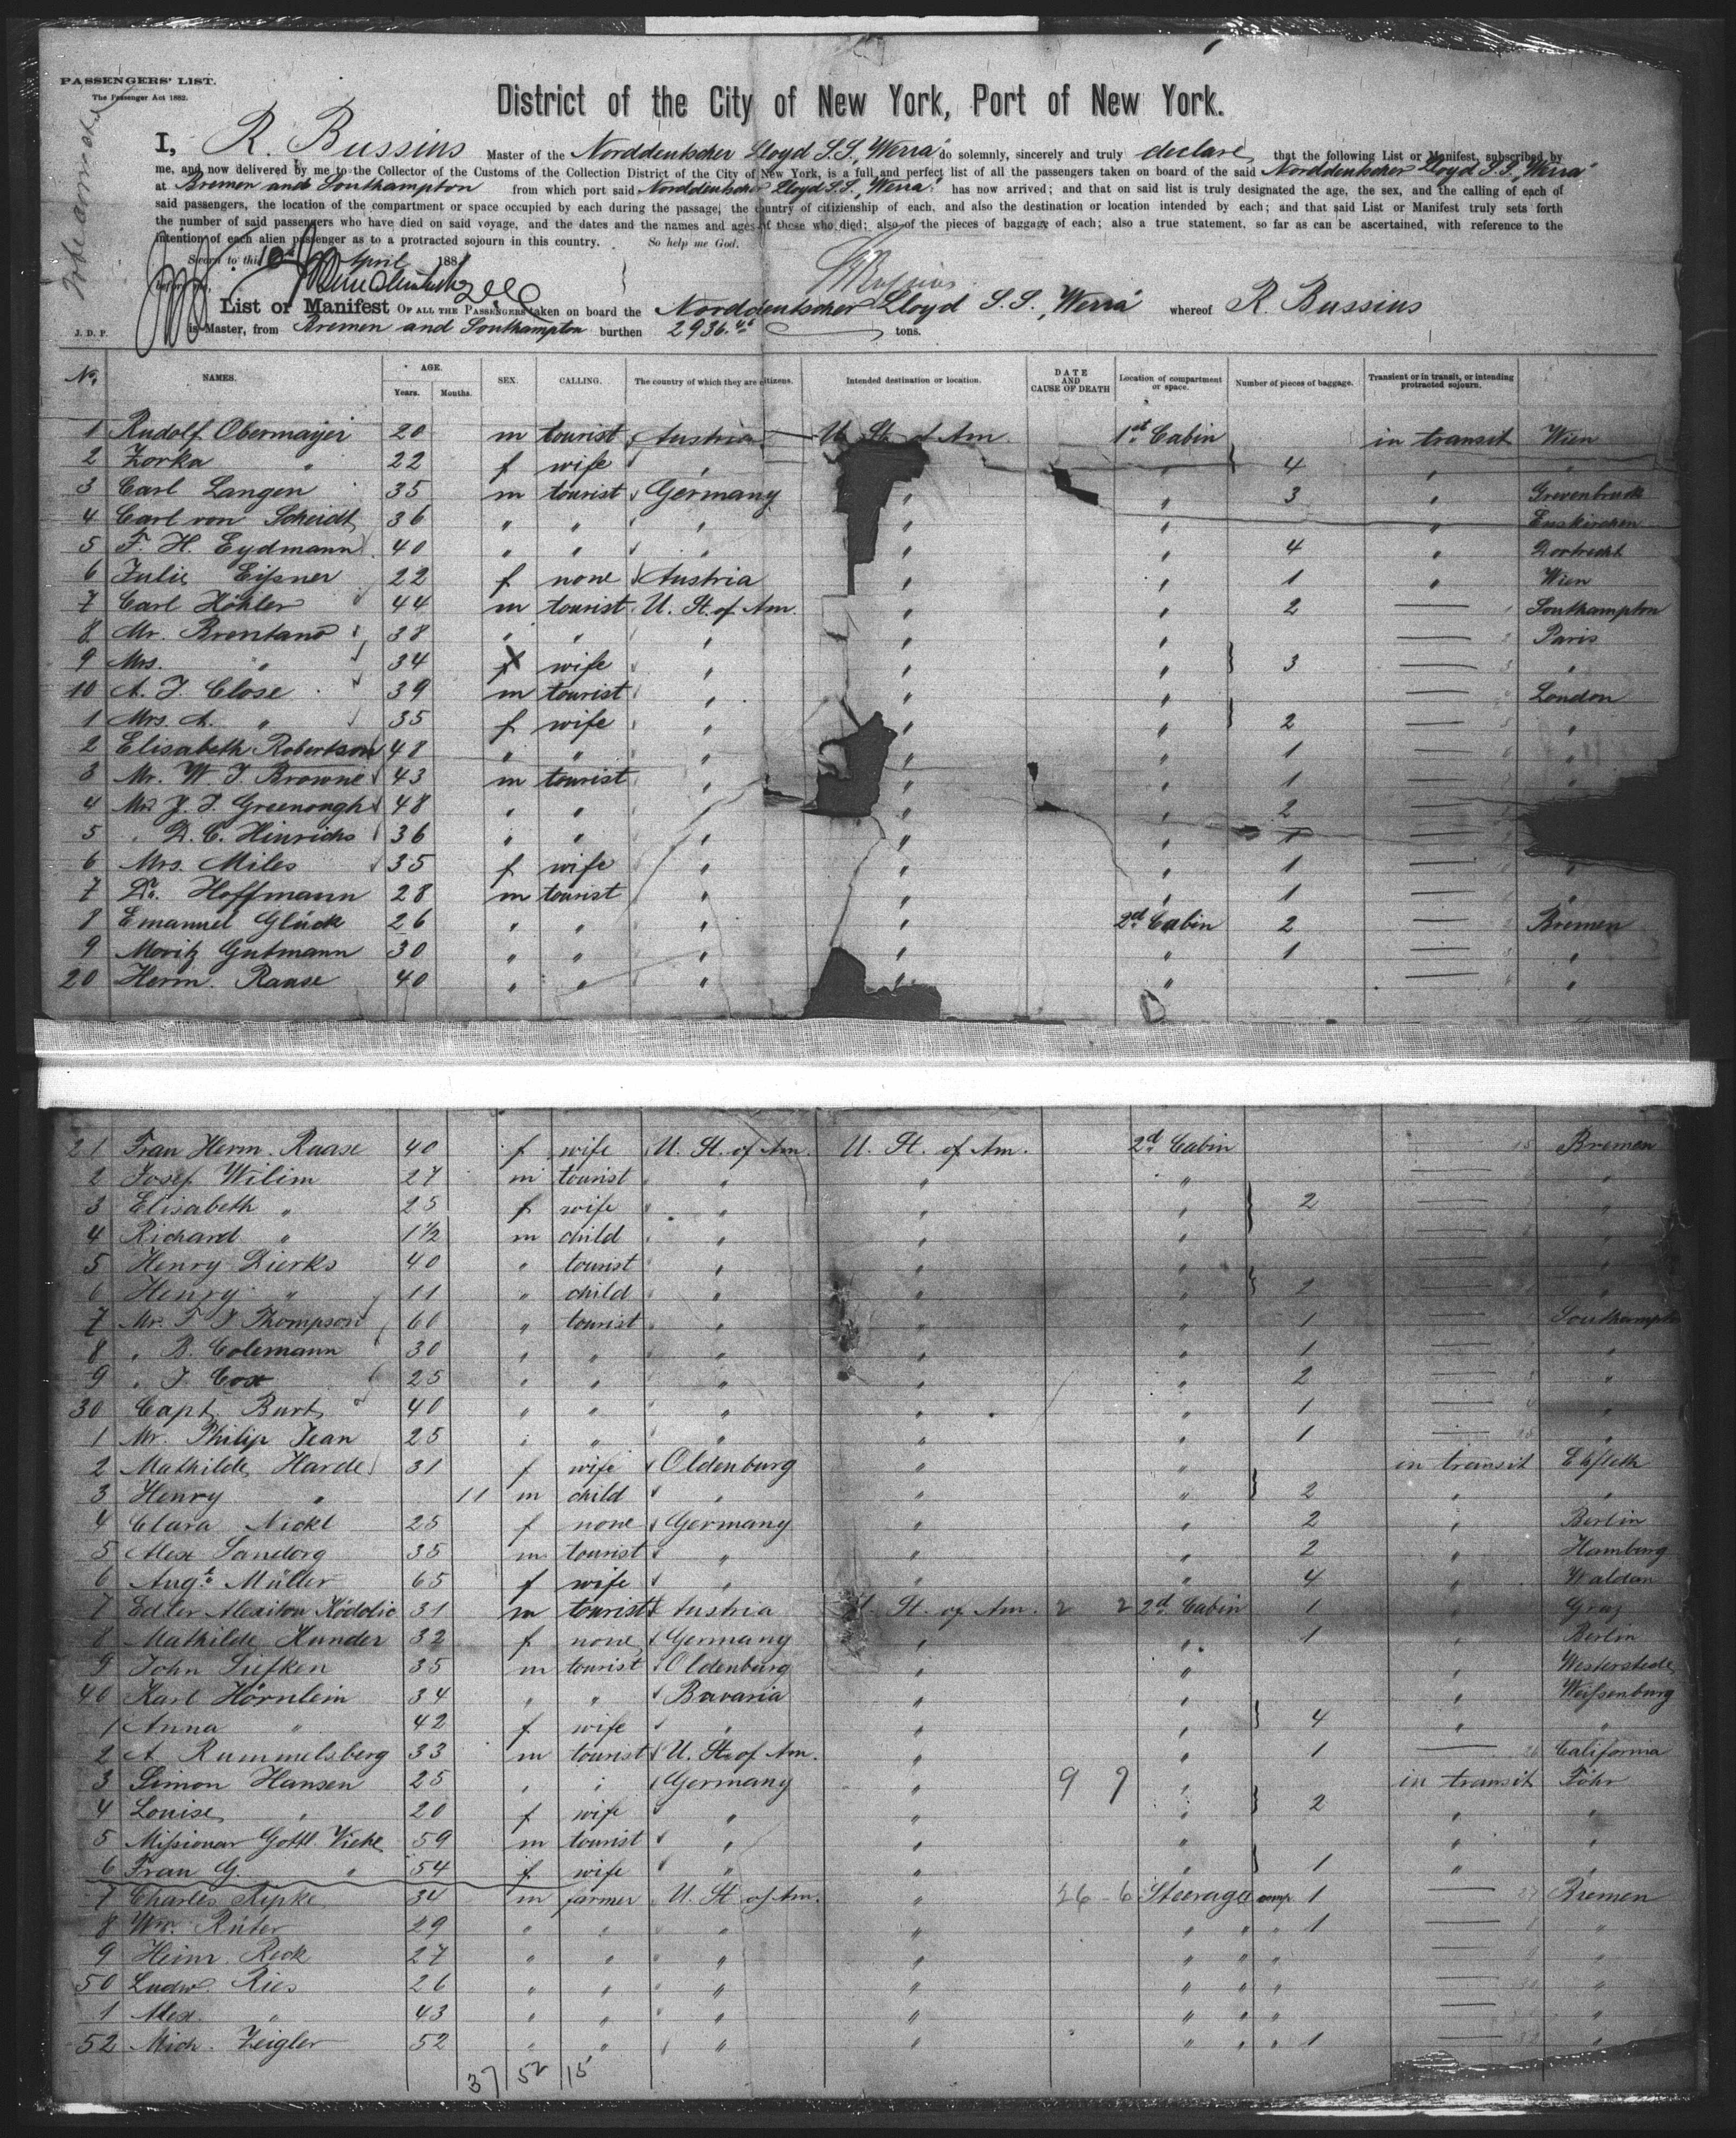 PASSENGERS' LIST.
The Passenger Act 1882.
District of the City of New York, Port of New York.
I, R. Bussius Master of the Norddeutscher Lloyd S.S. "Werra" do solemnly, sincerely and truly declare that the following List or Manifest, subscribed by
me, and now delivered by me to the Collector of the Customs of the Collection District of the City of New York, is a full and perfect list of all the passengers taken on board of the said Norddeutscher Lloyd S.S. "Werra"
at Bremen and Southampton from which port said Norddeutscher Lloyd S.S. "Werra" has now arrived; and that on said list is truly designated the age, the sex, and the calling of each of
said passengers, the location of the compartment or space occupied by each during the passage, the country of citizienship of each, and also the destination or location intended by each; and that said List or Manifest truly sets forth
the number of said passengers who have died on said voyage, and the dates and the names and ages of those who died; also of the pieces of baggage of each; also a true statement, so far as can be ascertained, with reference to the
intention of each alien passenger as to a protracted sojourn in this country. So help me God.
Sworn to this April 188
List or Manifest OF ALL THE PASSENGERS taken on board the Norddeutscher Lloyd S.S. "Werra" whereof R. Bussius
J. D. P. is Master, from Bremen and Southampton burthen 2936.46 tons.
No. NAMES. AGE. Years. Months. SEX. CALLING. The country of which they are citizens. Intended destination or location. DATE AND CAUSE OF DEATH Location of compartment or space. Number of pieces of baggage. Transient or in transit, or intending protracted sojourn.
1 Rudolf Obermayer 20 m tourist Austria U. St. of Am. 1st Cabin in transit Wien
2 Zorka " 22 f wife " " } 4 " "
3 Carl Langen 35 m tourist Germany " " 3 " Grevenbruck
4 Carl von Scheidt 36 " " " " " " Euskirchen
5 F. H. Eydmann 40 " " " " " 4 " Dortrecht
6 Julie Eißner 22 f none Austria " " 1 " Wien
7 Carl Höhler 44 m tourist U. St. of Am. " " 2 — Southampton
8 Mr. Brentano 38 " " " " " — Paris
9 Mrs. " 34 f wife " " " } 3 — "
10 A. J. Close 39 m tourist " " " — London
1 Mrs. A. " 35 f wife " " " } 2 — "
2 Elisabeth Robertson 48 " " " " " 1 — "
3 Mr. W. J. Browne 43 m tourist " " " 1 — "
4 Mr J. J. Greenough 48 " " " " " 2 —
5 " D. C. Hinrichs 36 " " " " " 1 —
6 Mrs. Miles 35 f wife " " " 1 — "
7 Dr. Hoffmann 28 m tourist " " " 1 — "
8 Emanuel Glück 26 " " " " 2d Cabin 2 — Bremen
9 Moritz Gutmann 30 " " " " " 1 — "
20 Herm. Raase 40 " " " " " — "
21 Frau Herm. Raase 40 f wife U. St. of Am. U. St. of Am. 2d Cabin Bremen
2 Josef Wilim 27 m tourist " " " — "
3 Elisabeth " 25 f wife " " " } 2 — "
4 Richard " 1½ m child " " " — "
5 Henry Dierks 40 " tourist " " " — "
6 Henry " 11 " child " " " } 2 — "
7 Mr. F. J. Thompson 60 " tourist " " " 1 — Southampton
8 " B. Colemann 30 " " " " " 1 — "
9 " J. Cox 25 " " " " " 2 — "
30 Capt. Burt 40 " " " " " 1 — "
1 Mr. Philip Jean 25 " " " " " 1 — "
2 Mathilde Harde 31 f wife Oldenburg " " in transit Elsfleth
3 Henry " 11 m child " " " } 2 " "
4 Clara Nickl 25 f none Germany " " 2 " Berlin
5 Alex Sandorg 35 m tourist " " " 2 " Hamburg
6 Augte Müller 65 f wife " " " 4 " Waldau
7 Edler Alexiton Ködolic 31 m tourist Austria U. St. of Am. 2 2 2d Cabin 1 " Graz
8 Mathilde Hunder 32 f none Germany " " 1 " Berlin
9 John Siefken 35 m tourist Oldenburg " " " Westerstede
40 Karl Hörnlein 34 " " Bavaria " " " Weißenburg
1 Anna " 42 f wife " " " } 4 " "
2 A. Rummelsberg 33 m tourist U. St. of Am. " " 1 — California
3 Simon Hansen 25 " " Germany " 9 9 " in transit Föhr
4 Louise " 20 f wife " " " } 2 " "
5 Mißionar Gottl. Viehe 59 m tourist " " " " "
6 Frau G. " 54 f wife " " " } 1 " "
7 Charles Ripke 34 m farmer U. St. of Am. " 36 - 6 Steerage comp. 1 — Bremen
8 Wm. Rüter 29 " " " " " " " 1 — "
9 Heinr. Reck 27 " " " " " " " — "
50 Ludw. Ries 26 " " " " " " " — "
1 Alex. " 43 " " " " " " " — "
52 Mich. Zeigler 52 " " " " " " " 1 — "
37 52 15